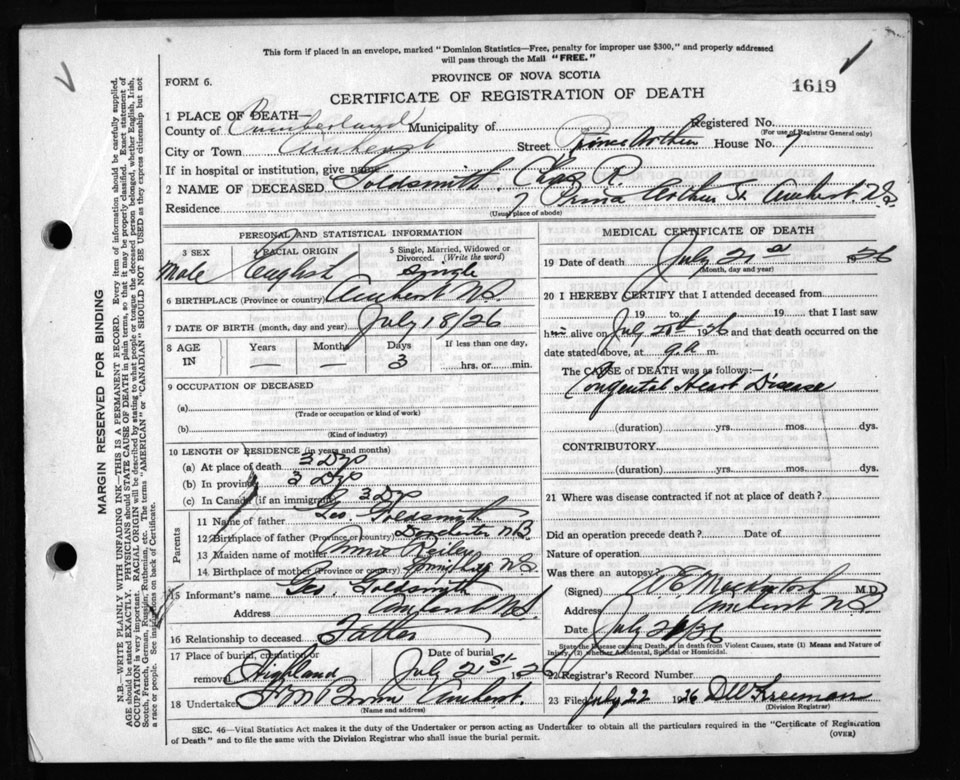 This form if placed in an envelope, marked "Dominion Statistics—Free, penalty for improper use $300," and properly addressed
will pass through the Mail "FREE."
PROVINCE OF NOVA SCOTIA
FORM 6.
CERTIFICATE OF REGISTRATION OF DEATH
1619
1 PLACE OF DEATH—
County of Cumberland Municipality of Registered No.
(For use of Registrar General only)
City or Town Amherst Street Prince Arthur House No. 7
If in hospital or institution, give name
2 NAME OF DECEASED Goldsmith, R.
Residence 7 Prince Arthur St Amherst N.S.
(Usual place of abode)
PERSONAL AND STATISTICAL INFORMATION
3 SEX
Male
4 RACIAL ORIGIN
English
5 Single, Married, Widowed or
Divorced. (Write the word)
Single
6 BIRTHPLACE (Province or country) Amherst N.S.
7 DATE OF BIRTH (month, day and year) July 18/26
8 AGE IN
Years Months Days If less than one day,
— — 3 hrs. or min.
9 OCCUPATION OF DECEASED
(a)
(Trade or occupation or kind of work)
(b)
(Kind of industry)
10 LENGTH OF RESIDENCE (in years and months)
(a) At place of death 3 Dys
(b) In province 3 Dys
(c) In Canada (if an immigrant) 3 Dys
Parents
11 Name of father Geo. Goldsmith
12 Birthplace of father (Province or country) N.B.
13 Maiden name of mother Annie
14 Birthplace of mother (Province or country) N.S.
15 Informant's name Geo. Goldsmith
Address Amherst N.S.
16 Relationship to deceased Father
17 Place of burial, cremation or Date of burial
removal Highland July 21st 1926
18 Undertaker Amherst.
(Name and address)
MEDICAL CERTIFICATE OF DEATH
19 Date of death July 21st 1926
(Month, day and year)
20 I HEREBY CERTIFY that I attended deceased from
19 to 19 that I last saw
him alive on July 20th 1926 and that death occurred on
date stated above, at 9 a. m.
The CAUSE of DEATH was as follows:—
Congenital Heart Disease
(duration) yrs. mos. dys.
CONTRIBUTORY.
(duration) yrs. mos. dys.
21 Where was disease contracted if not at place of death?
Did an operation precede death? Date of
Nature of operation
Was there an autopsy?
(Signed) M.D.
Address Amherst N.S.
Date July 21/26
State the Disease causing Death, or in death from Violent Causes, state (1) Means and Nature of
Injury, (2) whether Accidental, Suicidal or Homicidal.
22 Registrar's Record Number
23 Filed July 22 1926 D W Freeman
(Division Registrar)
SEC. 46—Vital Statistics Act makes it the duty of the Undertaker or person acting as Undertaker to obtain all the particulars required in the "Certificate of Registration
of Death" and to file the same with the Division Registrar who shall issue the burial permit.
(OVER)
MARGIN RESERVED FOR BINDING
N.B.—WRITE PLAINLY WITH UNFADING INK—THIS IS A PERMANENT RECORD. Every item of information should be carefully supplied.
AGE should be stated EXACTLY. PHYSICIANS should STATE CAUSE OF DEATH in plain terms, so that it may be properly classified. Exact statement of
OCCUPATION is very important. RACIAL ORIGIN will be described by stating to what people or tongue the deceased person belonged, whether English, Irish,
Scotch, French, German, Russian, Ruthenian, etc. The terms "AMERICAN" or "CANADIAN" SHOULD NOT BE USED as they express citizenship but not
a race or people. See instructions on back of Certificate.